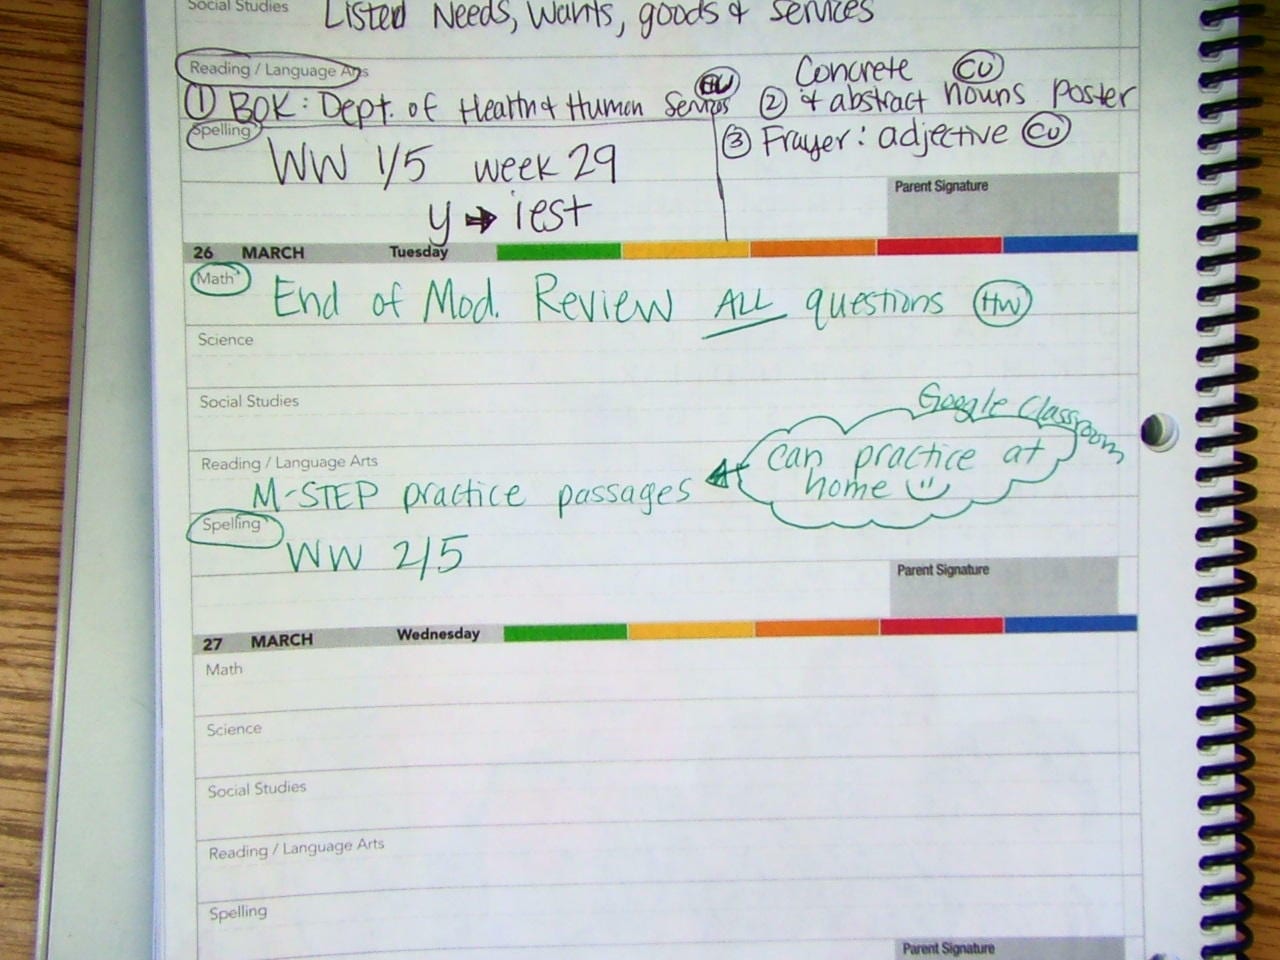 Social Studies Listed Needs, Wants, goods & services
Reading / Language Arts
① BOK: Dept. of Health & Human Services CU
② Concrete & abstract nouns poster CU
③ Frayer: adjective CU
Spelling
WW 1/5 week 29
y → iest
Parent Signature
26 MARCH Tuesday
Math End of Mod. Review ALL questions HW
Science
Social Studies
Google Classroom
can practice at
home
Reading / Language Arts
M-STEP practice passages
Spelling
WW 2/5
Parent Signature
27 MARCH Wednesday
Math
Science
Social Studies
Reading / Language Arts
Spelling
Parent Signature